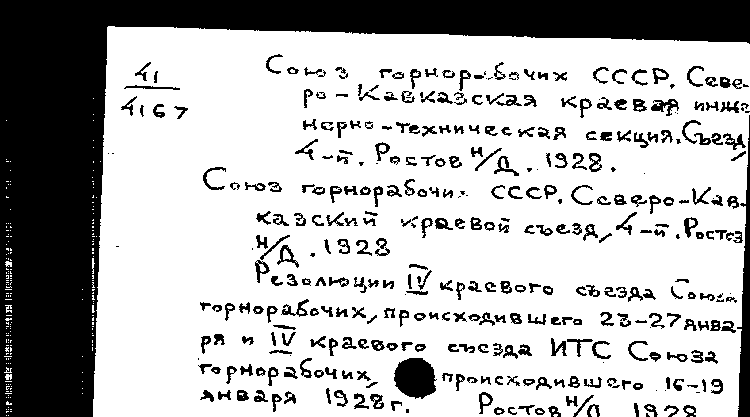 41
4167
Союз горнорабочих СССР. Севе-
ро-Кавказская краевая инже
нерно-техническая секция. Съезд,
4-й. Ростов н/Д. 1928.
Союз горнорабочих СССР. Северо-Кав-
казский краевой съезд, 4-й. Ростов
н/Д. 1928
Резолюции IV краевого съезда Союза
горнорабочих, происходившего 23-27 янва-
ря и IV краевого съезда ИТС Союза
горнорабочих, происходившего 16-19
января 1928 г. Ростов н/Д 1928